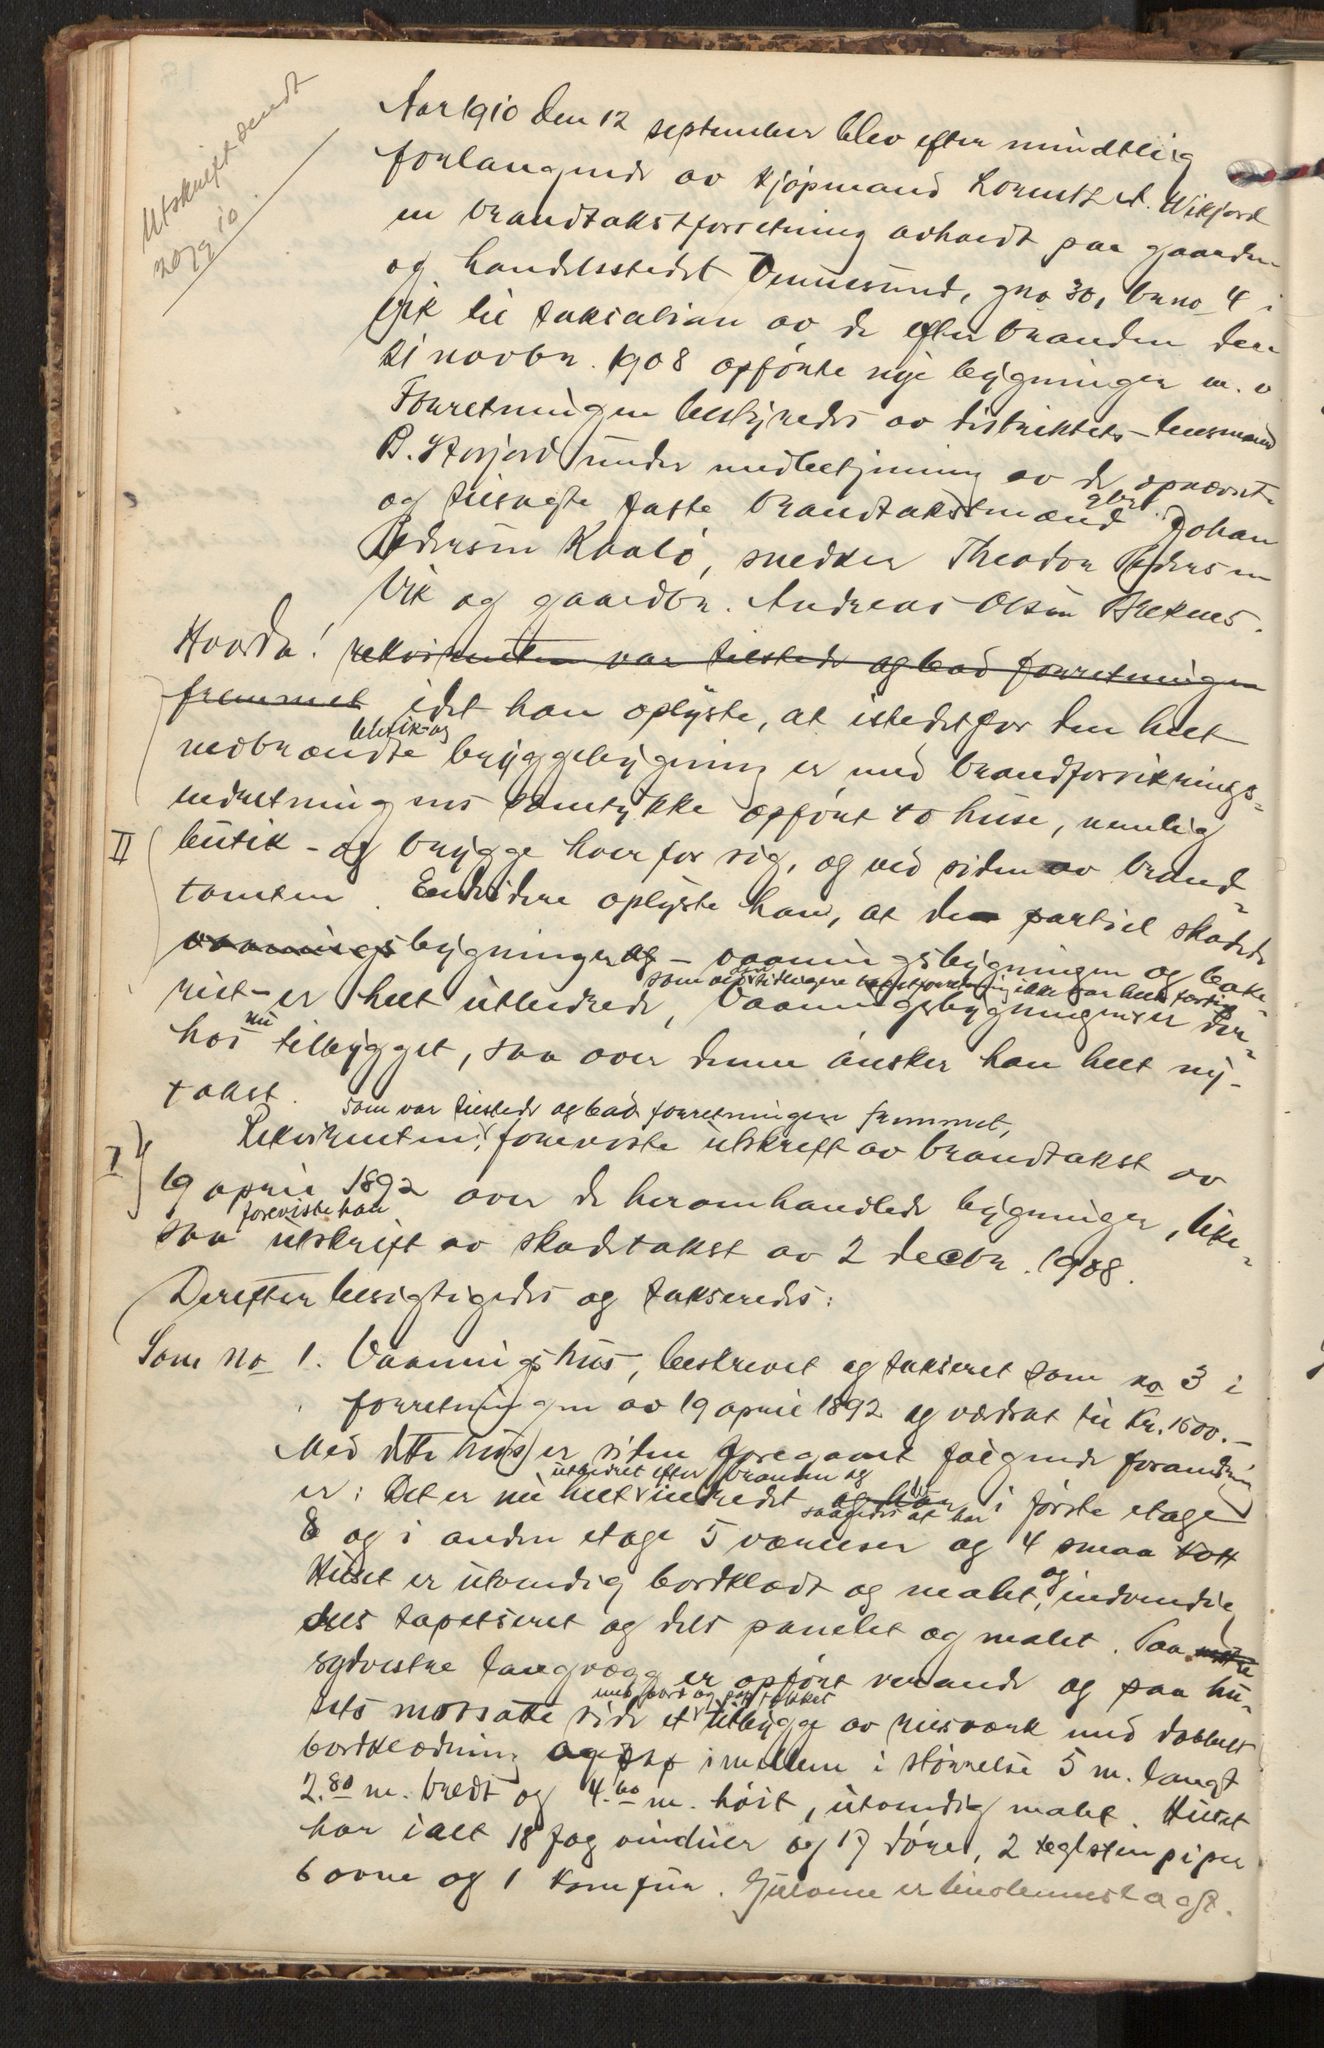 Utskrift sendt
20/9 10.
Aar 1910 den 12 september blev efter mundtlig
forlangende av kjøpmand Lorentz A. Wikjord
en brandtakstforretning avholdt paa gaarden
og handelsstedet Vennesund, gno 30, brno 4 i
Vik til taksation av de efter branden den
21 novbr. 1908 opførte nye bygninger m. v
Forretningen bestyredes av distriktets lensmand
B. Storjord under medbetjening av de opnævnte
og tilsagte faste brandtakstmænd gbr. Johan
Pedersen Kvalø, snedker Theodor Pedersen
Vik og gaardbr. Andreas Olsen Breknes.
Hvorda! rekvirenten var tilstede og bad forretningen
fremmet idet han oplyste, at istedetfor den helt
butik- og
nedbrændte bryggebygning er med brandforsikrings-
indretningens samtykke opført to huse, nemlig
II butik - og brygge hver for sig, og ved siden av brand-
tomten. Endvidere oplyste han, at de partiel skadede
vaanings bygninger og - vaaningsbygningen og bake-
som ved den tidligere takstforretning ikke var helt færdig
rist - er helt utbedrede, Vaaningsbygningen er der-
hos nu tilbygget, saa over denne ønsker han helt ny-
takst.
som var tilstede og bad forretningen fremmet,
I Rekvirenten, foreviste utskrift av brandtakst av
19 april 1892 over de heromhandlede bygninger, like-
foreviste han
saa utskrift av skadetakst av 2 decbr. 1908.
Derefter besigtigedes og takseredes:
Som no 1. Vaaningshus, beskrevet og takseret som no 3 i
forretningen av 19 april 1892 og værdsat til Kr. 1600.-
Med dette hus er siden foregaaet følgende forandring
utbedret efter branden og
er: Det er nu helt indredet og har i første etage
saaledes at har
8 og i anden etage 5 værelser og 4 smaa kott
Huset er utvendig bordklædt og malet, og indvendig
dels tapetseret og dels panelet og malet. Paa
sydvestre langvægg er opført veranda og paa hu-
med bord og pap tækket
sets motsatte side et tilbygg av reisværk med dobbelt
bordklædning og pap imellem i størrelse 5 m. langt
2.80 m. bredt og 4.60 m. høit, utvendig malet. Huset
har ialt 18 fag vinduer og 17 døre, 2 teglstenpiper
6 ovne og 1 komfur. Gulvene er linoleumbelagt.